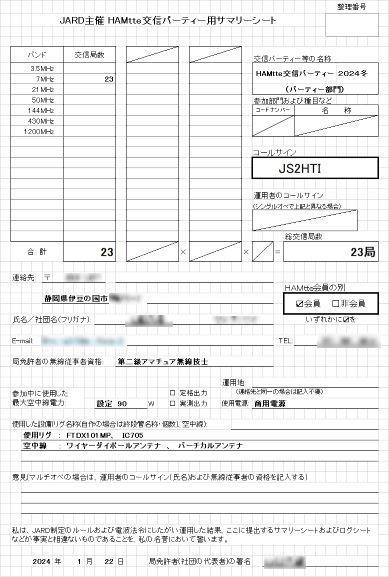 整理番号
JARD主催 HAMtte交信パーティー用サマリーシート
バンド 交信局数
3.5MHz
7MHz 23
21MHz
50MHz
144MHz
430MHz
1200MHz
合 計 23 × × = 23局
交信パーティー等の名称
HAMtte交信パーティー 2024冬
(パーティー部門)
参加部門および種目など
コードナンバー 名 称
コールサイン
JS2HTI
運用者のコールサイン
(シングルオペで上記と異なる場合)
総交信局数
連絡先 〒
静岡県伊豆の国市
HAMtte会員の別
☑会員 □非会員
いずれかに☑を
氏名/社団名(フリガナ)
E-mail TEL
局免許者の無線従事者資格 第二級アマチュア無線技士
参加中に使用した
最大空中線電力 設定 90 W
□ 定格出力
□ 実測出力
運用地
(連絡先と同一の場合は記入不要)
使用電源 商用電源
使用した設備(リグ名称(自作の場合は終段管名称・個数)、空中線)
使用リグ : FTDX101MP、 IC705
空中線 : ワイヤーダイポールアンテナ 、 バーチカルアンテナ
意見(マルチオペの場合は、運用者のコールサイン(氏名)および無線従事者の資格を記入する)
私は、JARD制定のルールおよび電波法令にしたがい運用した結果、ここに提出するサマリーシートおよびログシート
などが事実と相違ないものであることを、私の名誉において誓います。
2024 年 1 月 22 日 局免許者(社団の代表者)の署名